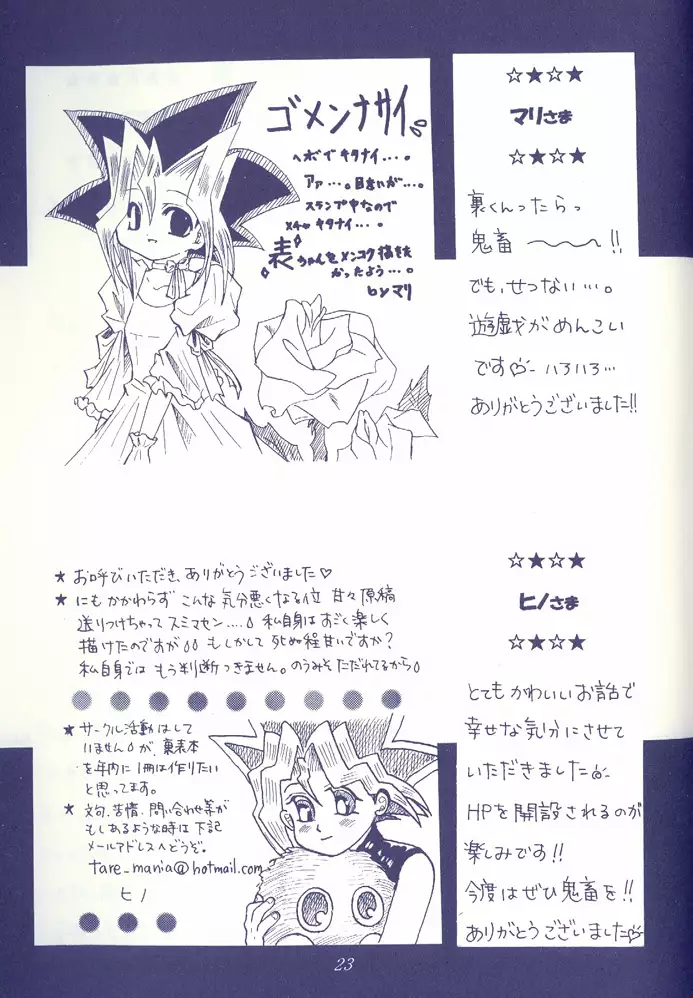 ゴメンナサイ
ヘボでキタナイ…。
アァ…。目まいが…。
スランプ中なので
メチャキタナイ…。
表ちゃんをメンコク描きた
かったよう…。
by マリ
☆★☆★
マリさま
☆★☆★
裏くんったらっ
鬼畜〜〜!!
でも、せつない…。
遊戯がめんこい
です♡ いろいろ…
ありがとうございました!!
★ お呼びいただき、ありがとうございました♡
★ にもかかわらず こんな気分悪くなる位 甘々原稿
送りつけちゃって スミマセン…。私自身は すごく楽しく
描けたのですが もしかして 死ぬ程甘いですか?
私自身では もう判断つきません。のうみそただれてるから
★ サークル活動はして
いませんが、裏表本
を年内に1冊は作りたい
と思ってます。
★ 文句、苦情、問い合わせ等が
もしあるような時は 下記
メールアドレスへどうぞ。
tare_mania@hotmail.com
ヒノ
☆★☆★
ヒノさま
☆★☆★
とてもかわいいお話で
幸せな気分にさせて
いただきました
HPを開設されるのが
楽しみです!!
今度はぜひ鬼畜を!!
ありがとうございました♡
23